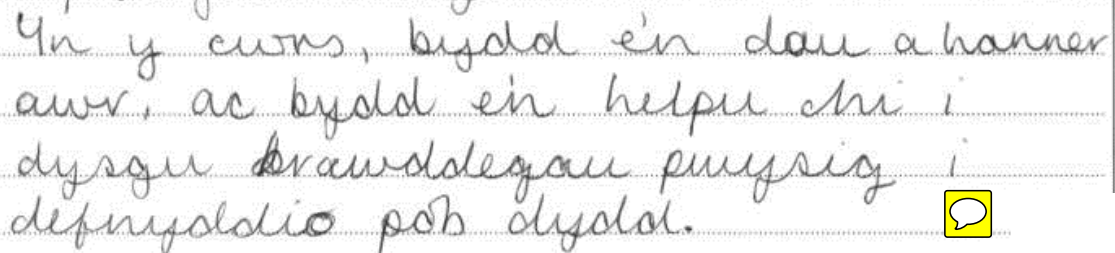 Yn y cwrs, bydd e'n dau a hanner
awr, ac bydd e'n helpu chi i
dysgu brawddegau pwysig i
defnyddio pob dydd.